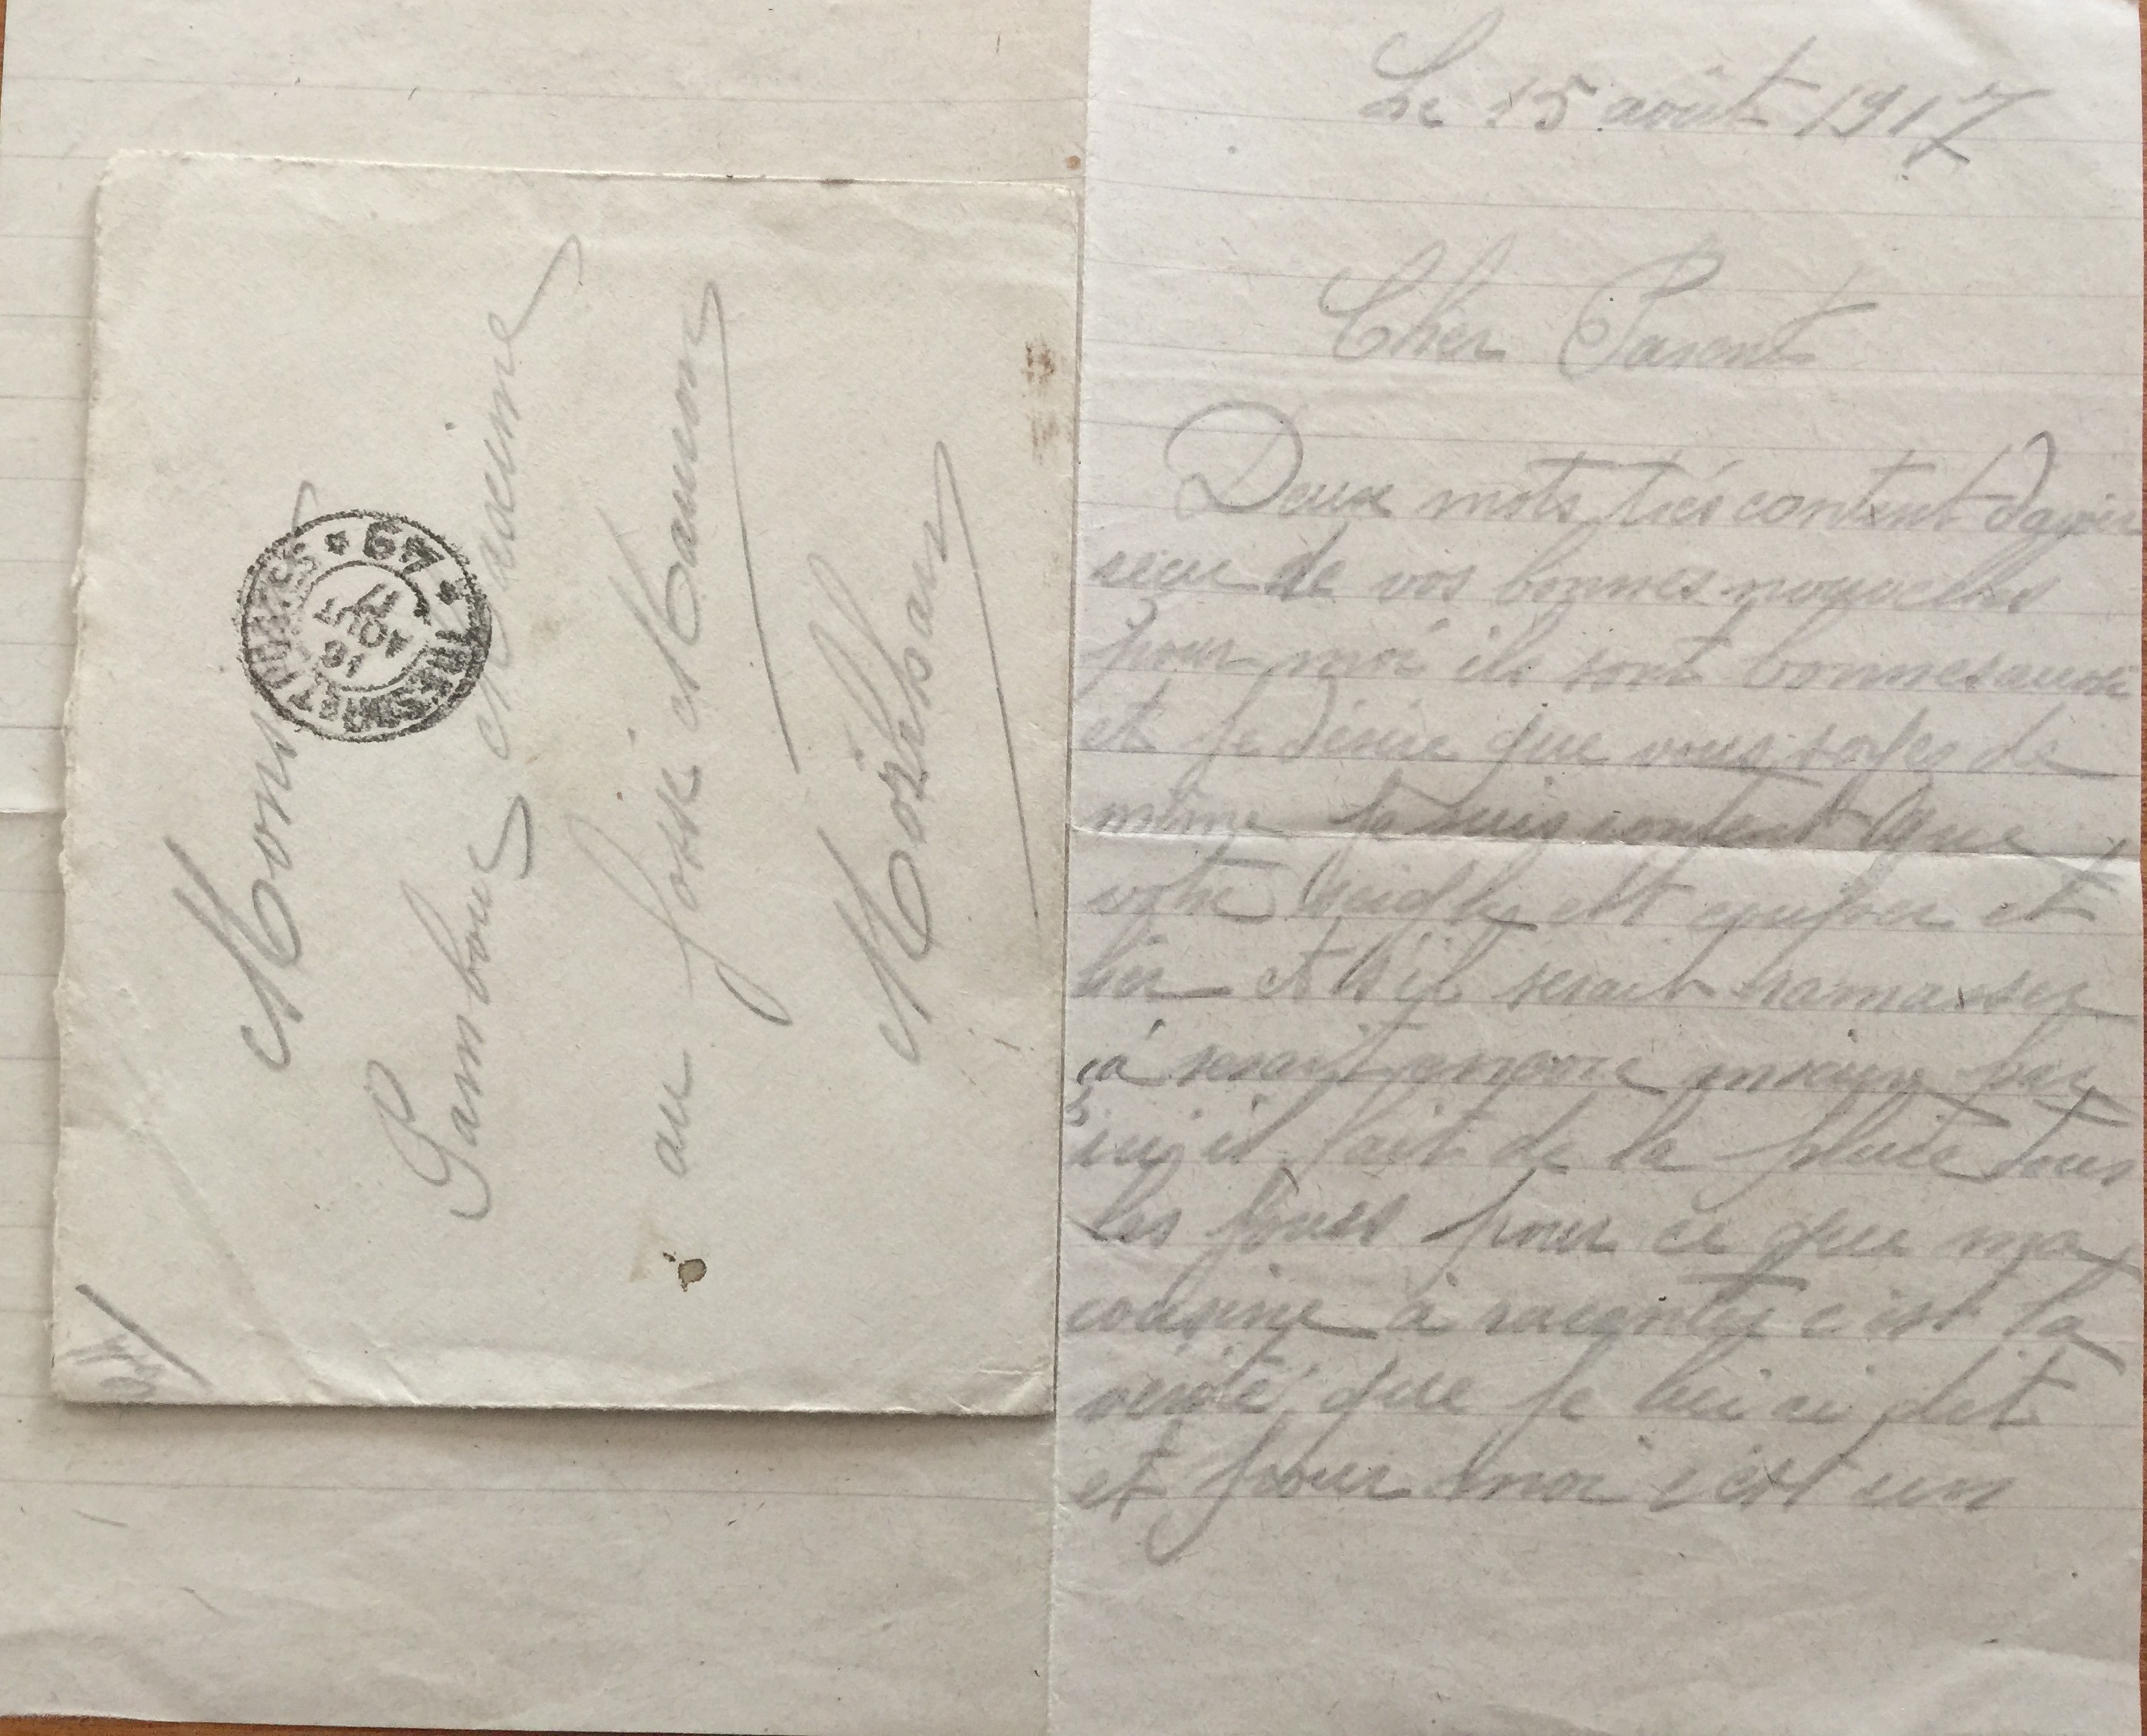 Monsieur
Mathurine
au Fossé Mauron
Morbihan
TRÉSOR ET POSTES * 67 *
16
AOUT
17
Le 15 août 1917
Cher Parent
Deux mots très content d'avoir
recu de vos bonnes nouvelles
pour moi ils sont bonnes aussi
et je désire que vous soyes de
même je suis content que
votre seigle est couper et
lier et s'il serait ramasser
ça serait encore mieux par
ici il fait de la pluie tous
les jours pour ce que ma
cousine à raconter c'est la
vérité que je lui ai dit
et pour moi c'est un